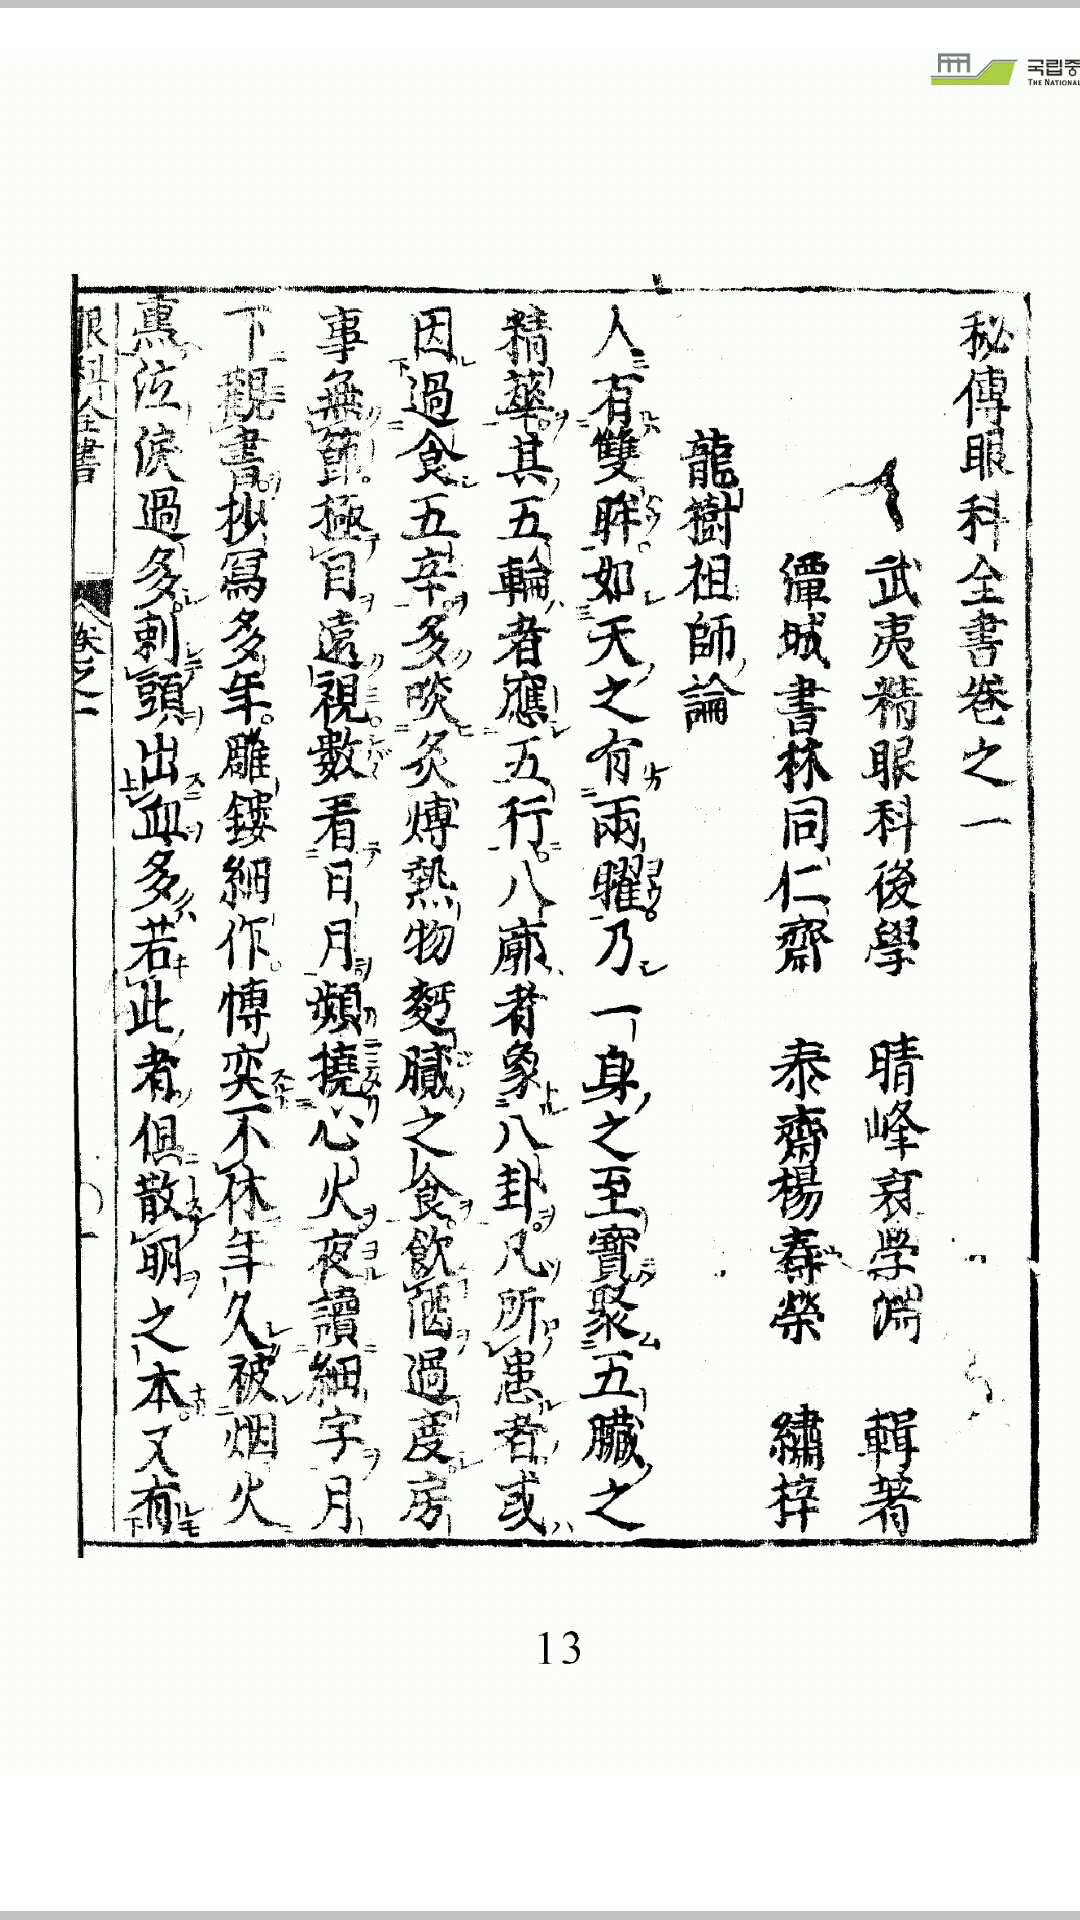 국립중
THE NATIONAL
秘傳眼科全書巻之一
武夷精眼科後學 晴峰袁学淵 輯著
潭城書林同仁齋 泰齋楊春榮 繡梓
龍樹祖師論
人有雙眸如天之有兩曜乃一身之至寶聚五臓之
精華其五輪者應五行八廓者象八卦凡所患者或
因過食五辛多啖炙煿熱物麪臓之食飲酒過度房
事無節極目遠視數看日月頻撓心火夜讀細字月
下觀書抄寫多年雕鏤細作博奕不休年久被烟火
熏泣淚過多刺頭出血多若此者俱散明之本又有
眼科全書 巻之一
13